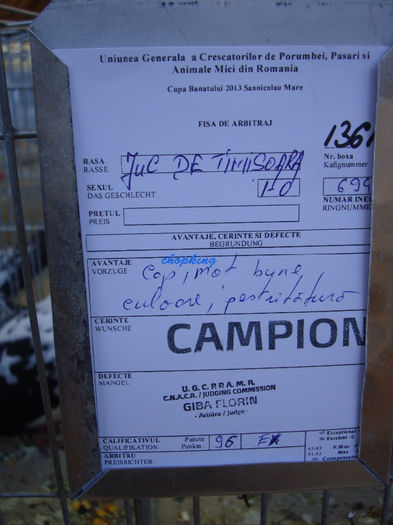 Uniunea Generala a Crescatorilor de Porumbei, Pasari si
Animale Mici din Romania
Cupa Banatului 2013 Sannicolau Mare
FISA DE ARBITRAJ
136
RASA
RASSE
JUC DE TIMISOARA
Nr. boxa
Kafignummer
SEXUL
DAS GESCHLECHT
1-0
694
NUMAR INEL
RINGNUMME
PRETUL
PREIS
AVANTAJE, CERINTE SI DEFECTE
BEGRUNDUNG
AVANTAJE
VORZUGE
chopking
Cap, mot bune,
culoare, pestritătură
CERINTE
WUNSCHE
CAMPION
DEFECTE
MANGEL
U. G. C. P. P. A. M. R.
C.N.A.C.R. / JUDGING COMMISSION
GIBA FLORIN
- Arbitru / Judge -
CALIFICATIVUL
QUALIFIKATION
Puncte
Punkm.
96
97 Exceptional
96 Excelent
ARBITRU
PREISRICHTER